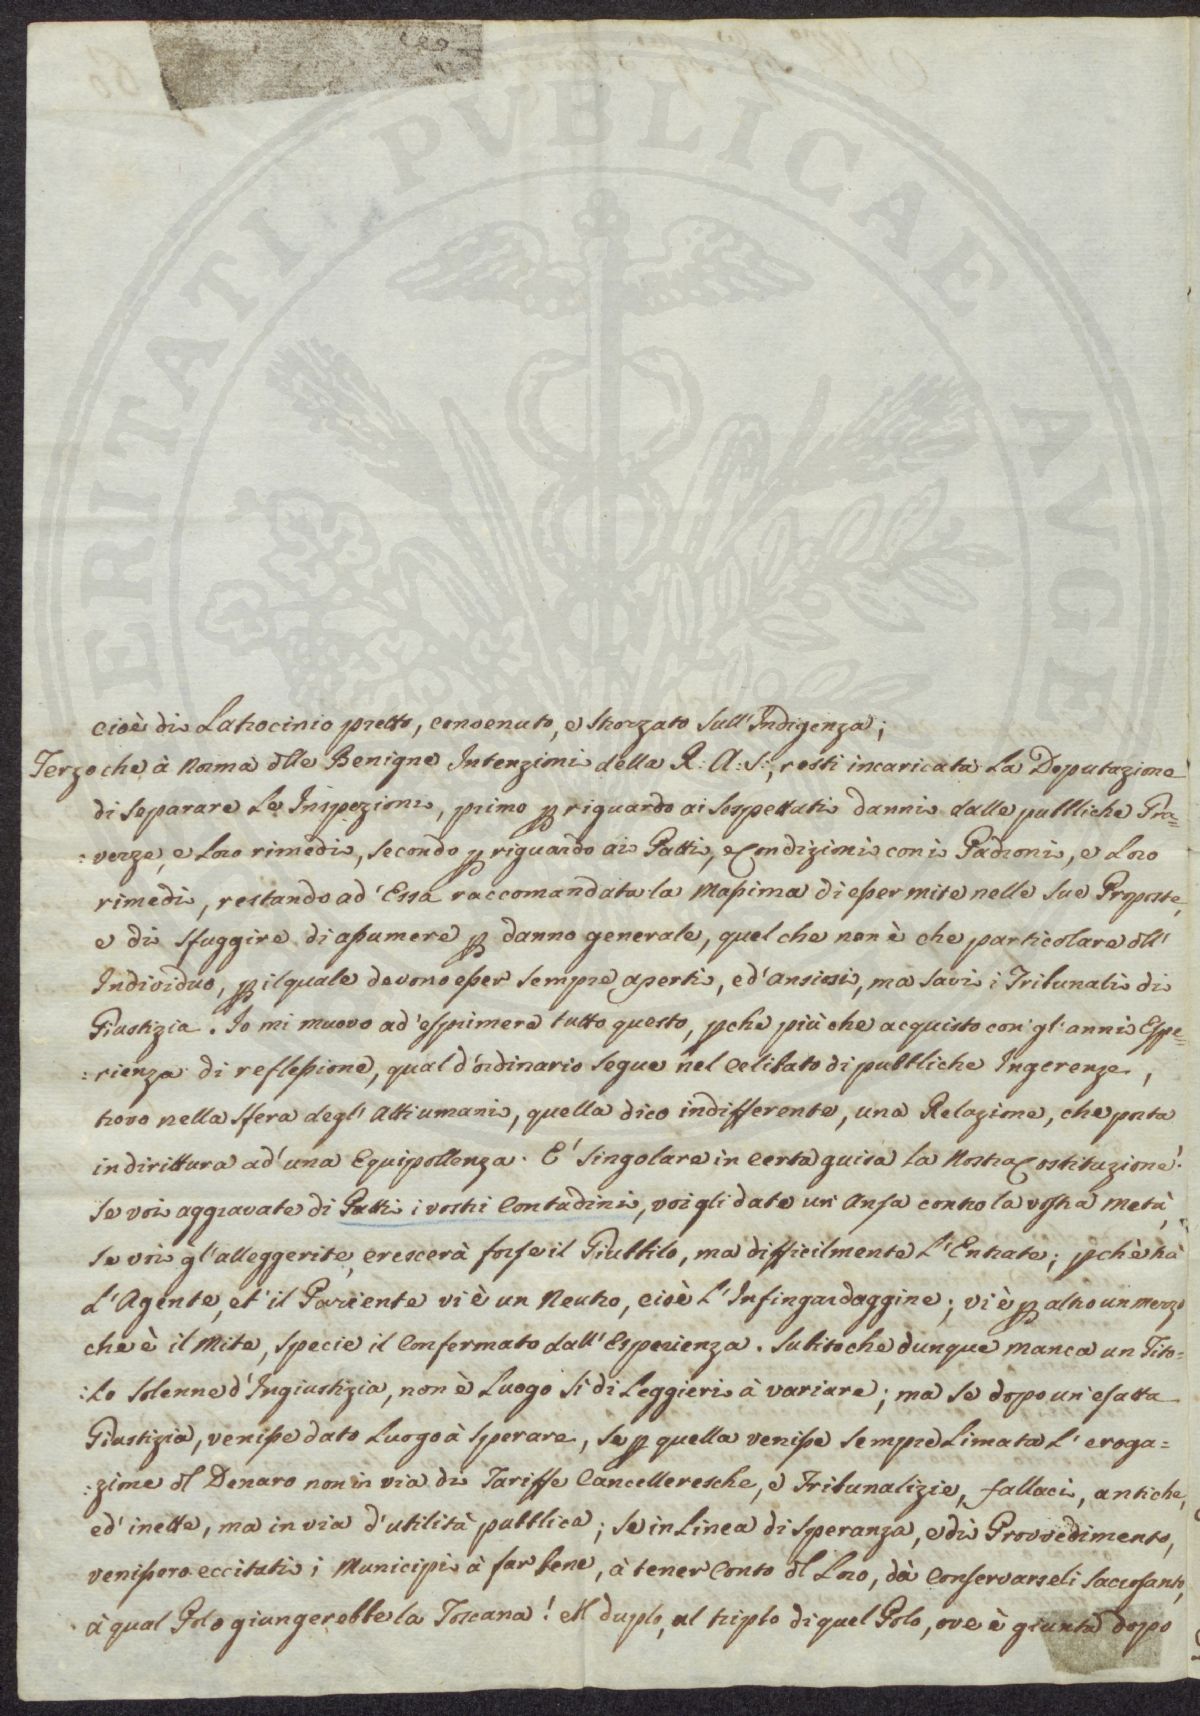 VERITATI PUBLICAE AUGE
cioè di Latrocinio pretto, convenuto, e sforzato sull'Indigenza;
Terzo che à norma dlle Benigne Intenzioni della R: A: S:, resti incaricata La Deputazione
di separare Le Inspezioni, primo p riguardo ai sospettati danni dalle pubbliche Gra=
:vezze, e Loro rimedi, secondo p riguardo ai Patti, e Condizioni con i Padroni, e Loro
rimedi, restando ad'Essa raccomandata la Massima di esser mite nelle sue Proposte,
e di sfuggire di assumere p danno generale, quel che non è che particolare dll'
Individuo, p il quale devono esser sempre aperti, ed'ansiosi, ma savi i Tribunali di
Giustizia. Io mi muovo ad'esprimere tutto questo, pche più che acquisto con gl'anni Espe=
:rienza di reflessione, qual d'ordinario segue nel Celibato di pubbliche Ingerenze,
trovo nella sfera degl'Atti umani, quella dico indifferente, una Relazione, che porta
in dirittura ad'una Equipollenza. E' singolare in certa guisa La Nostra Costituzione!
Se voi aggravate di Patti i vostri Contadini, voi gli date un'Ansa contro la vostra metà,
se voi gl'alleggerite, crescerà forse il Giubbilo, ma difficilmente L'Entrate; pchè trà
L'Agente, et'il Paziente vi è un Neutro, cioè L'Infingardaggine; vi è p altro un mezzo
che è il Mite, specie il Confermato dall'Esperienza. Subito che dunque manca un Tito=
:lo solenne d'Ingiustizia, non è Luogo sì di Leggieri à variare; ma se dopo un'esatta
Giustizia, venisse dato Luogo à sperare, se p quella venisse sempre Limata L'eroga=
:zione dl Denaro non in via di Tariffe Cancelleresche, e Tribunalizie, fallaci, antiche,
ed'inette, ma in via d'utilità pubblica; se in Linea di speranza, e di Provvedimento,
venissero eccitati i Municipi à far bene, à tener Conto dl Loro, dà Conservarseli sacrosanto,
à qual Polo giungerebbe la Toscana! Al duplo, al triplo di quel Polo, ove è giunta dopo